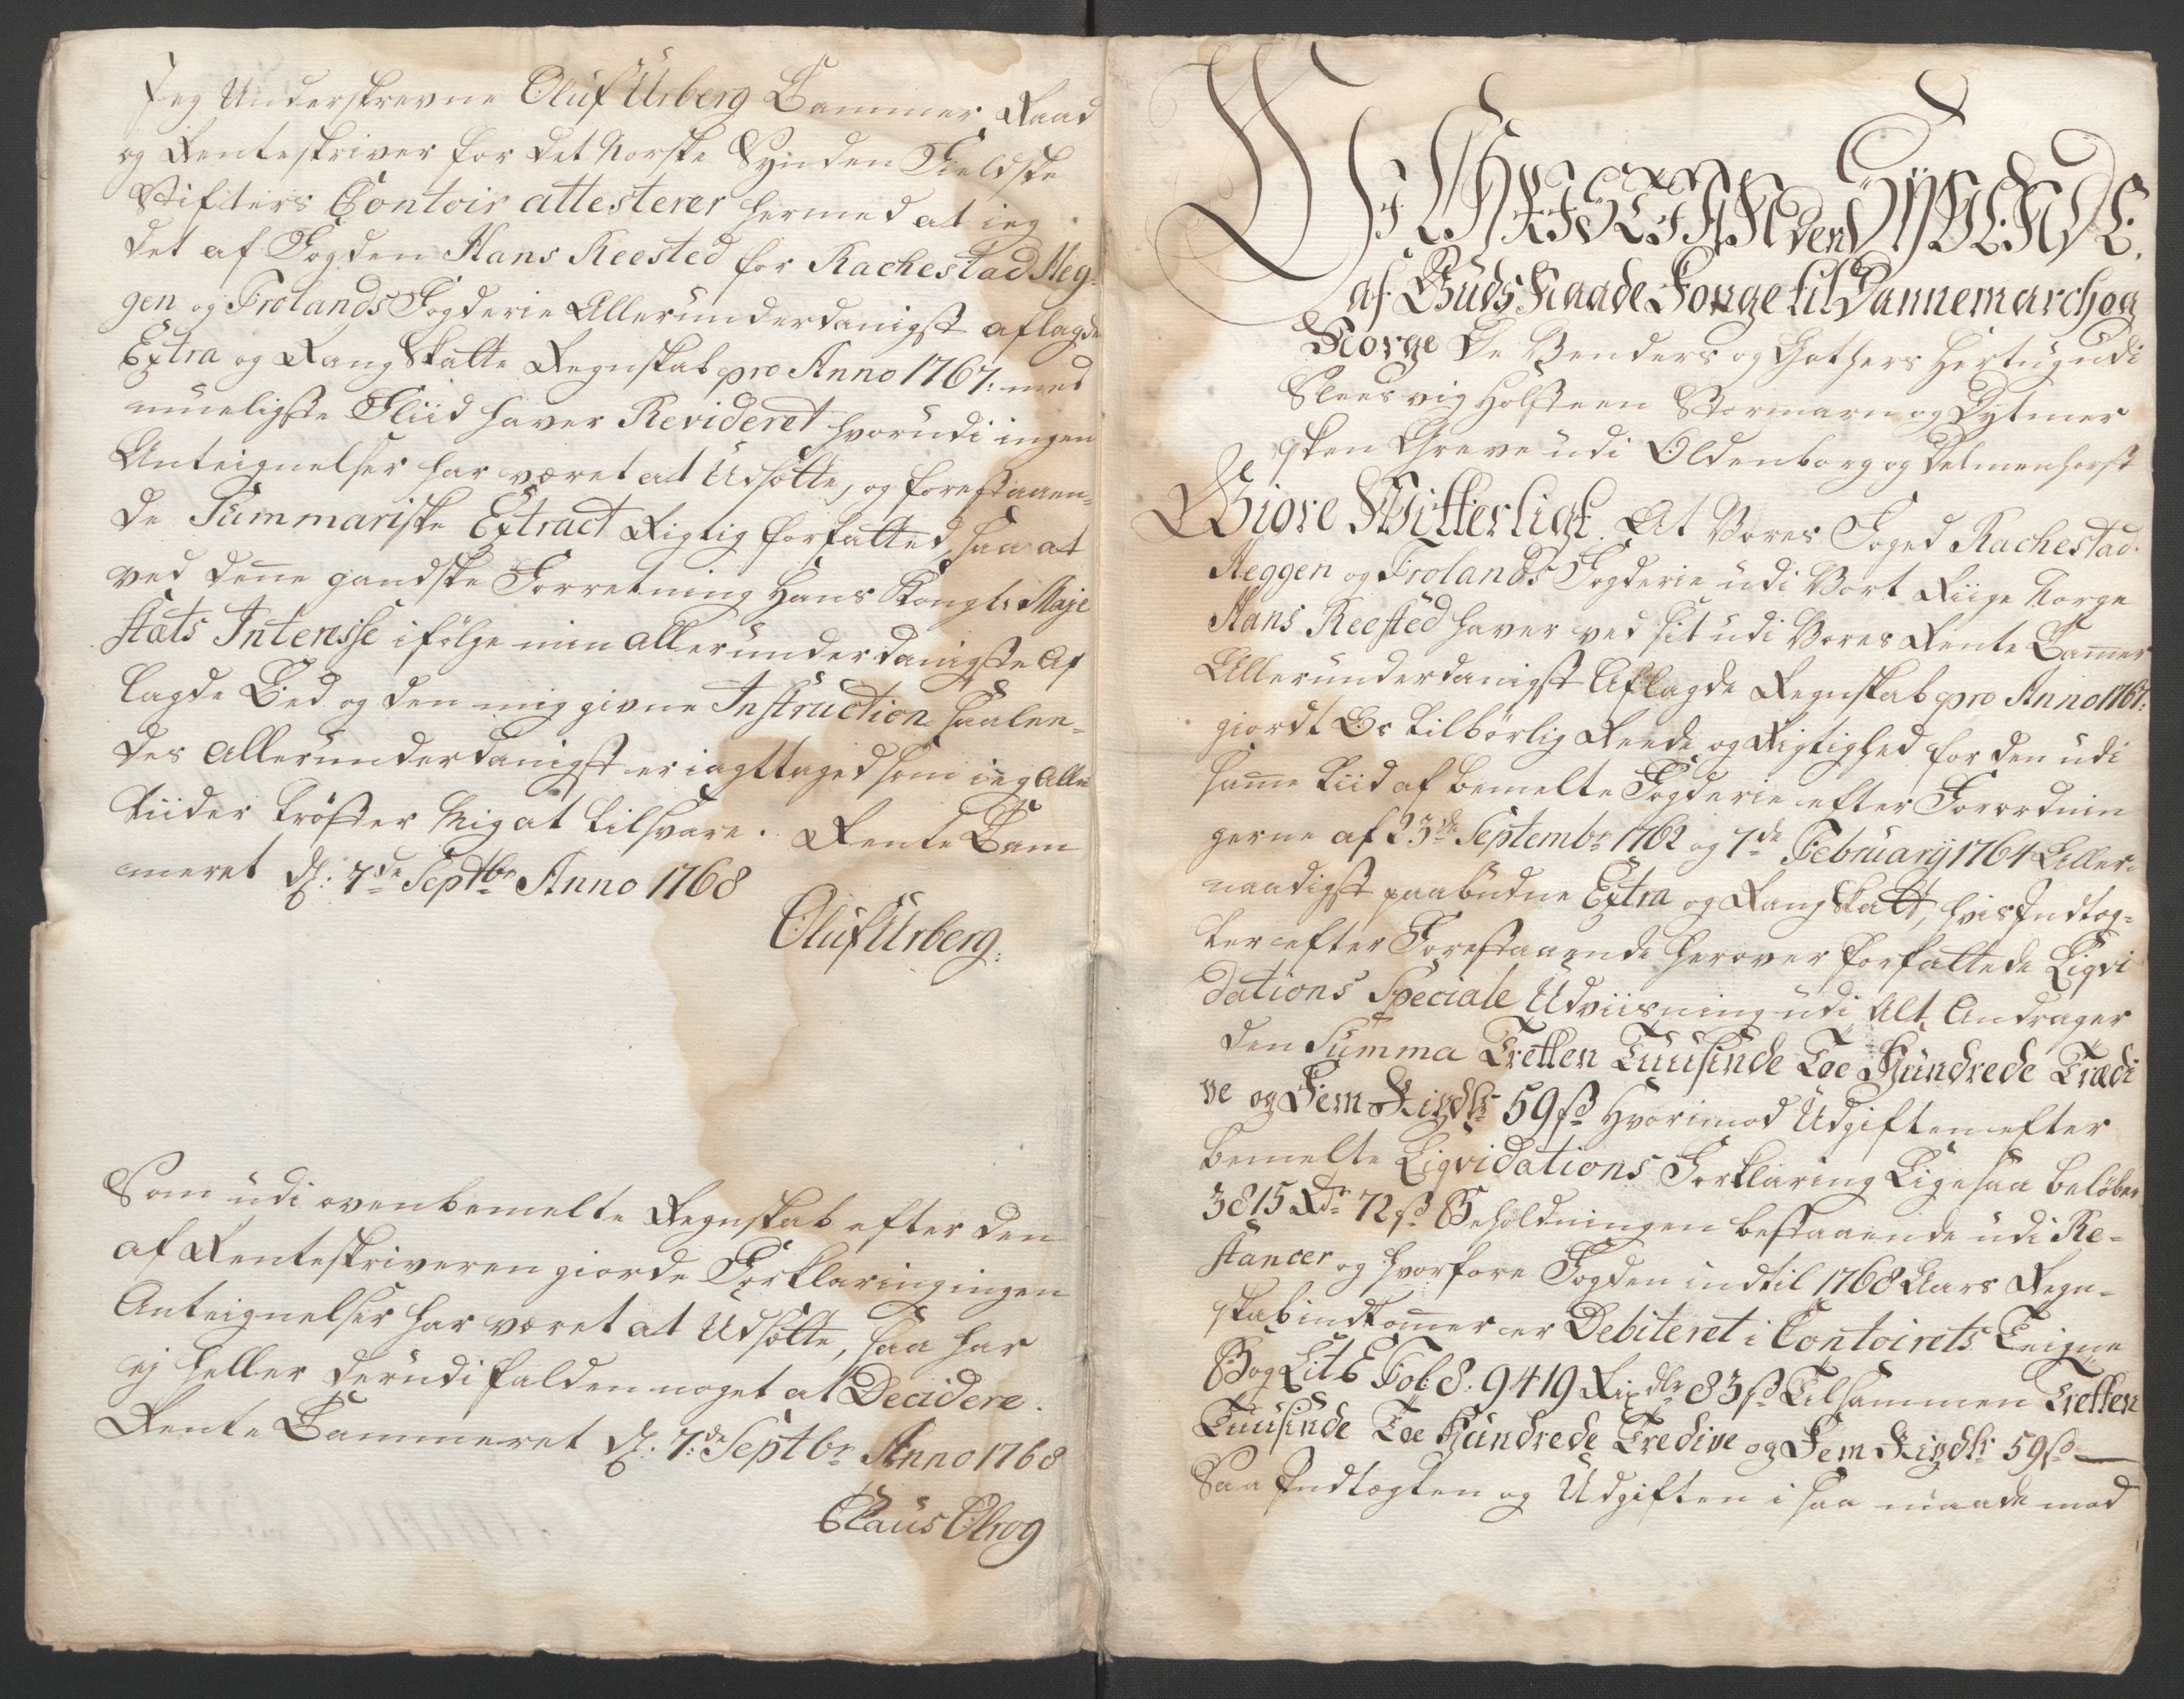 Jeg Underskrevne Oluf Urberg Cammer Raad
og Renteskriver for det Norske Synden Fieldske
Stifters Contoir attesterer hermed at ieg
det af Fogden Hans Reested for Rachestad Heg-
gen og Frolands Fogderie Allerunderdanigst aflagde
Extra og Rang Skatte Regnskab pro Anno 1767. med
mueligste Fliid haver Revideret hvorudi ingen
Anteignelser har været at Udsætte, og forestaaen-
de Summariske Extract Rigtig forfatted, saa at
ved denne gandske Forretning Hans Kongl: Maje
stæts Interesse i følge min allerunderdanigste Af
lagde Eed og den mig givne Instruction saalen-
des allerunderdanigst er iagttaged som ieg Alle
Tiider Trøster Mig at tilsvare. Rente Cam
meret d: 7de Septbr Anno 1768
Oluf Urberg.
Som udi ovenbemelte Regnskab efter den
af Renteskriveren giorde Forklaring ingen
Anteignelser har været at Udsætte, saa har
ej heller derudi falden noget at Decidere.
Rente Cammeret d. 7de Septbr Anno 1768
Claus
WJ CHRISTIAN den SYVENDE,
af Guds Naade Konge til Dannemarck og
Norge De Venders og Gothers Hertug udi
Sleesvig Holsteen Stormarn og Dytmer
sken Greve udi Oldenborg og Delmenhorst
Giøre Witterligt. At Vores Foged Rachestad
Heggen og Frolands Fogderie udi Vort Riige Norge
Hans Reested haver ved sit udi Vores Rente Cammer
Allerunderdanigst Aflagde Regnskab pro Anno 1767.
giordt Os tilbørlig Reede og Rigtighed for den udi
samme Tiid af bemelte Fogderie efter Forordnin
gerne af 23de Septembr 1762 og 7de February 1764 Aller-
naadigst paabudne Extra og Rang Skatt, hvis Indtæg-
ter efter Forestaaende herover forfattede Liqvi
dations Speciale Udviisning udi Alt Andrager
den Summa Tretten Tuusinde Toe Hundrede Trædi
ve og Fem Rixdlr 59 s Hvorimod Udgiften efter
bemelte Liqvidations Forklaring Ligesaa beløber
3815 Rdr 72 s Beholdningen bestaaende udi Re-
stancer og hvorfore Fogden indtil 1768 Aars Regn-
skab indkommer er Debiteret i Contoirets Teigne
Bog Lit E Fol: 8. 9419 Rixdlr 83 s Tilsammen Tretten
Tuusinde Toe Hundrede Tredive og Fem Rixdlr 59 s
Saa Indtægten og Udgiften i saa maade mod